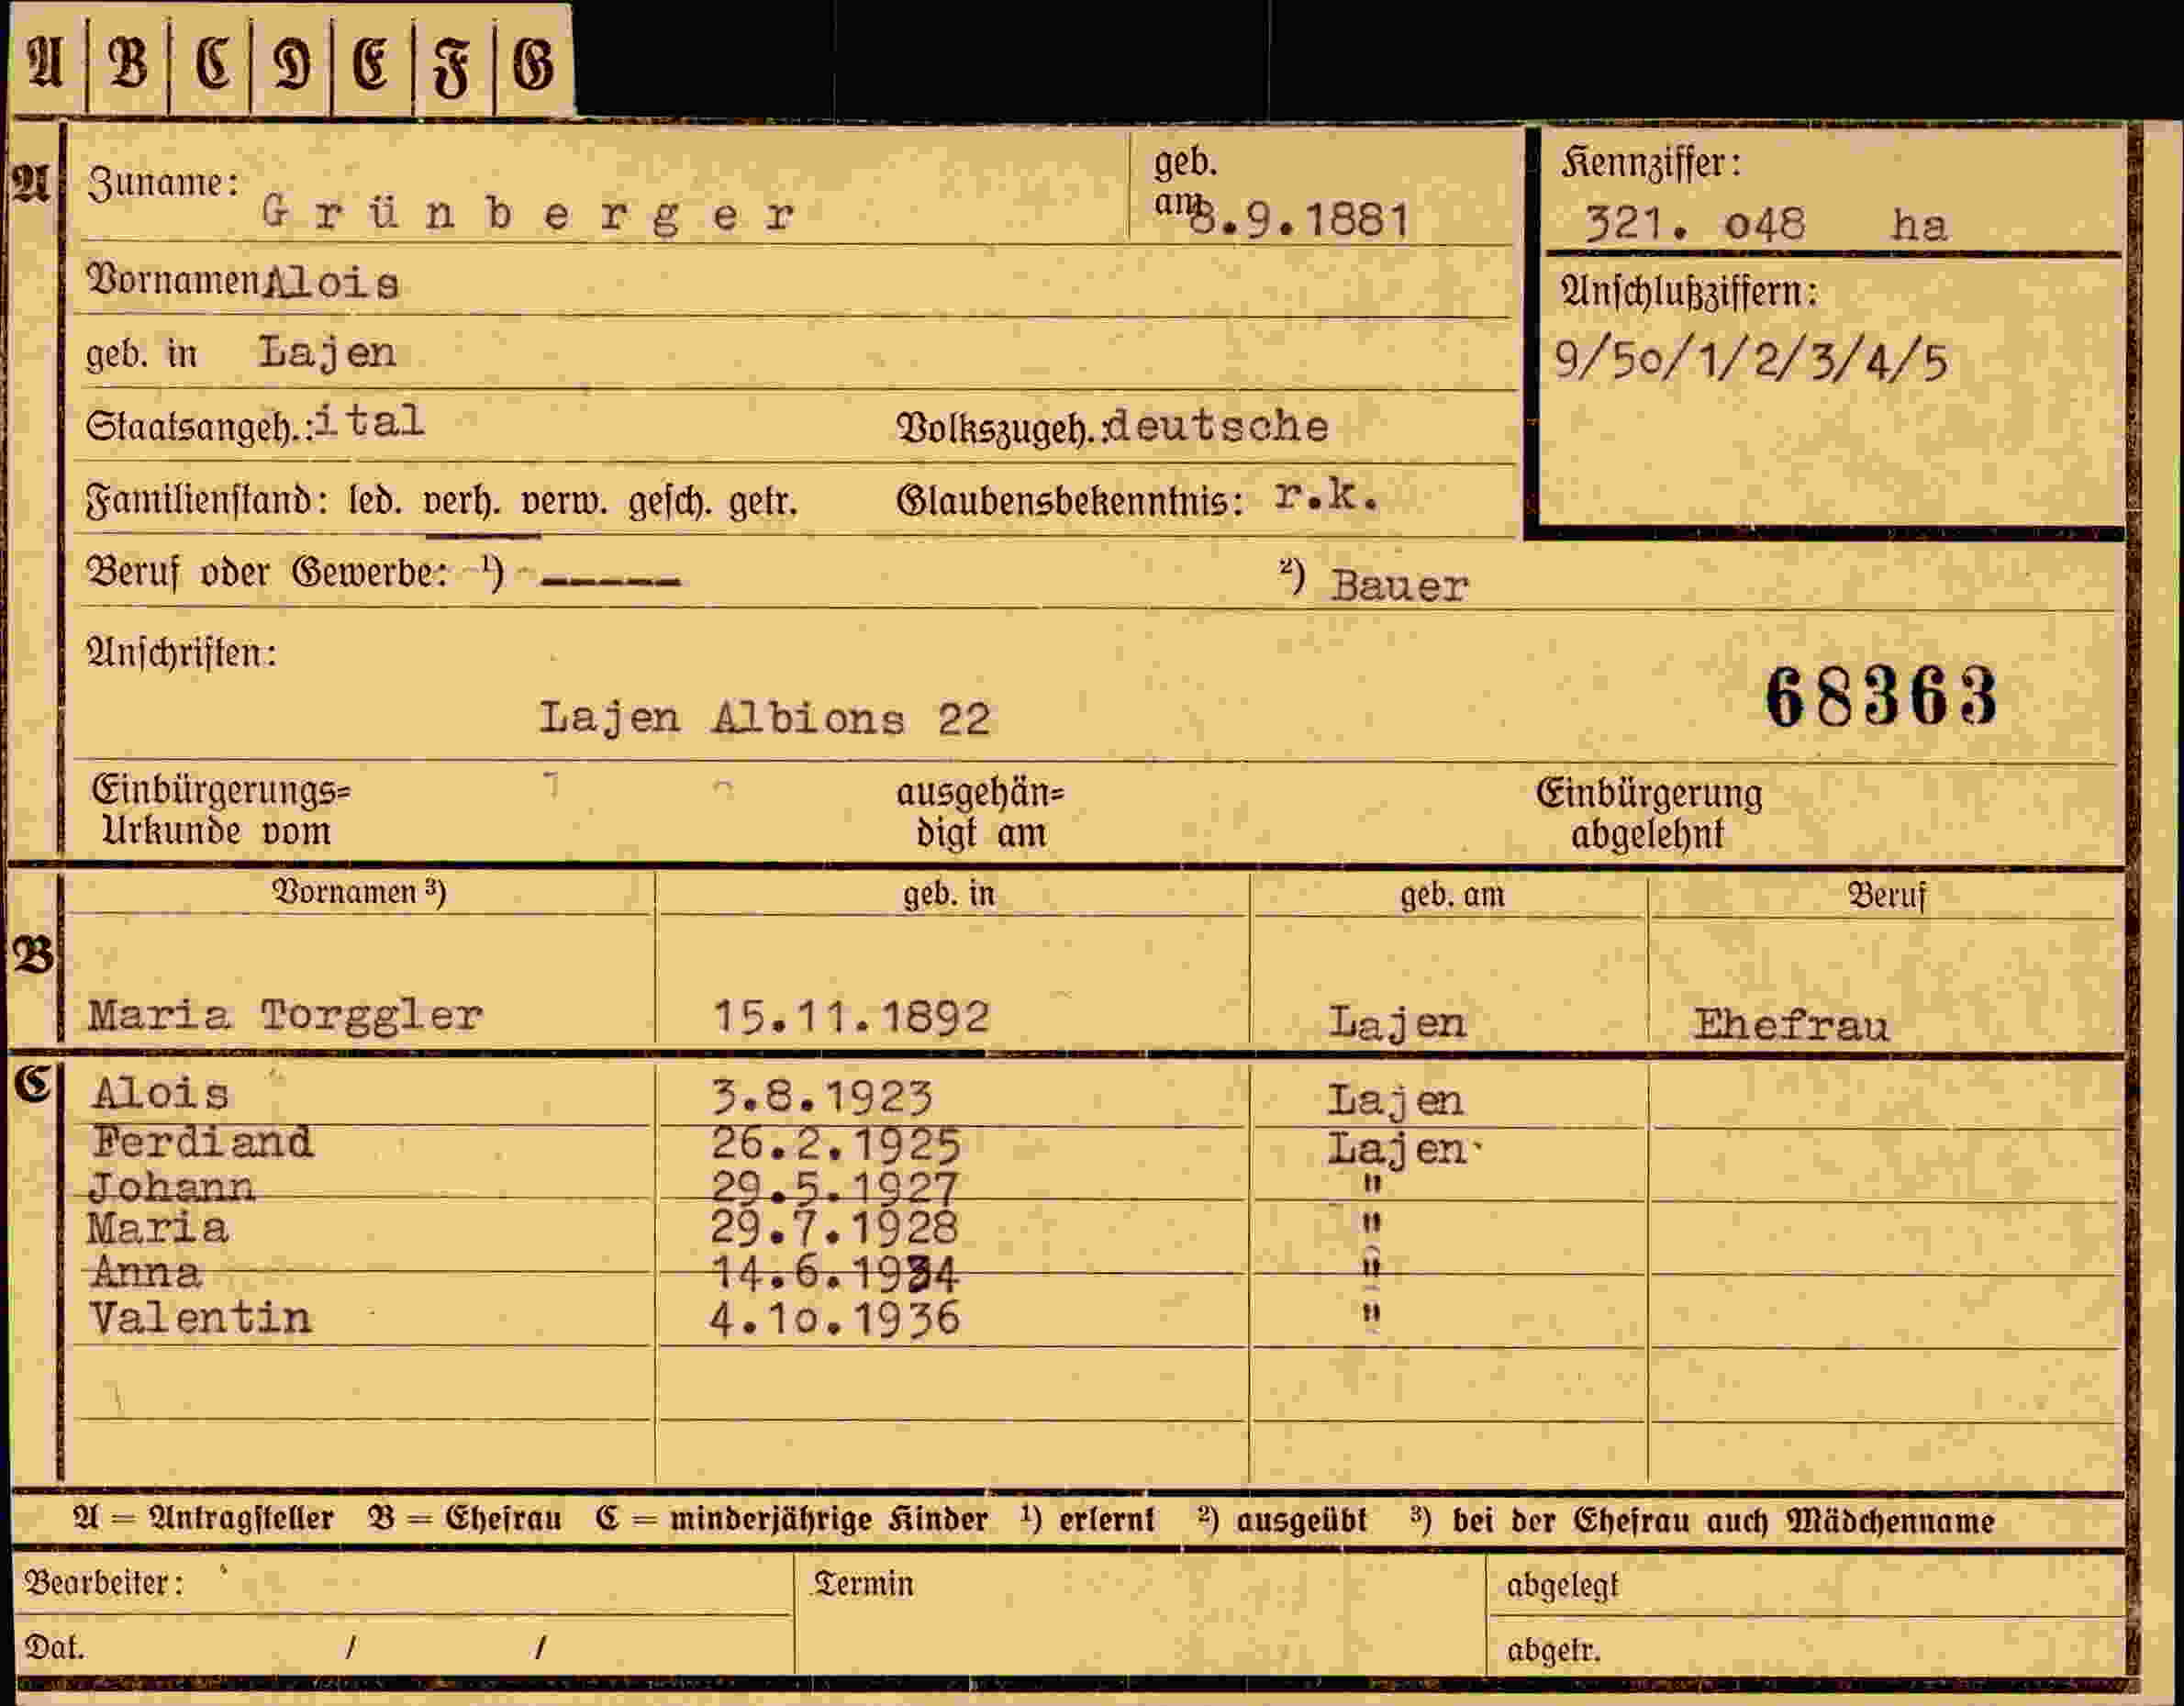 A B C D E F G
A Zuname: Grünberger geb. am 8.9.1881 Kennziffer: 321. o48 ha
Vornamen Alois Anschlußziffern:
geb. in Lajen 9/5o/1/2/3/4/5
Staatsangeh.: ital Volkszugeh.: deutsche
Familienstand: led. verh. verw. gesch. getr. Glaubensbekenntnis: r.k.
Beruf oder Gewerbe: ¹) ----- ²) Bauer
Anschriften:
68363
Lajen Albions 22
Einbürgerungs= ausgehän= Einbürgerung
Urkunde vom digt am abgelehnt
Vornamen ³) geb. in geb. am Beruf
B
Maria Torggler 15.11.1892 Lajen Ehefrau
C Alois 3.8.1923 Lajen
Ferdiand 26.2.1925 Lajen
Johann 29.5.1927 "
Maria 29.7.1928 "
Anna 14.6.1934 "
Valentin 4.1o.1936 "
A = Antragsteller B = Ehefrau C = minderjährige Kinder ¹) erlernt ²) ausgeübt ³) bei der Ehefrau auch Mädchenname
Bearbeiter: Termin abgelegt
Dat. / / abgetr.